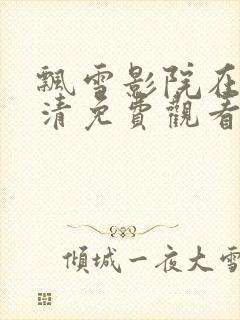 飄雪影院在
清免費觀看
傾城一夜大雪